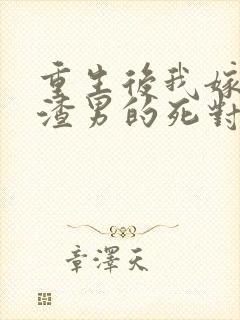 重生後我嫁
渣男的死對
章澤天